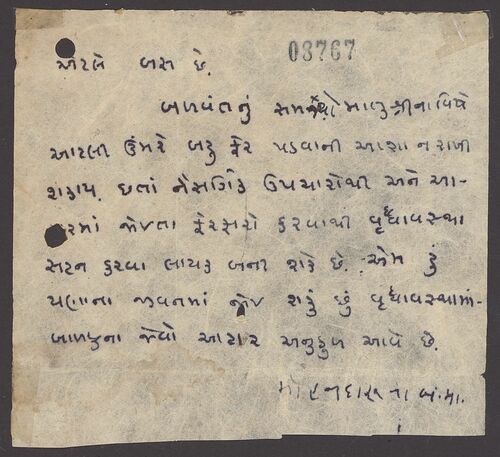 એટલે બસ છે.
08767
બળવંતનું સમજ્યો માતુશ્રીના વિષે
આટલી ઉંમરે બહુ ફેર પડવાની આશા ન રાખી
શકાય. છતાં નૈસર્ગિક ઉપચારોથી અને આ-
રમાં જોઇતા ફેરફારો કરવાથી વૃધ્ધાવસ્થા
સહન કરવા લાયક બની શકે છે. એમ હું
ઘણાના જીવનમાં જોઇ શકું છું વૃધ્ધાવસ્થામાં
બાળકના જેવો આહાર અનુકુળ આવે છે.
મોહનદાસના વં.મા.